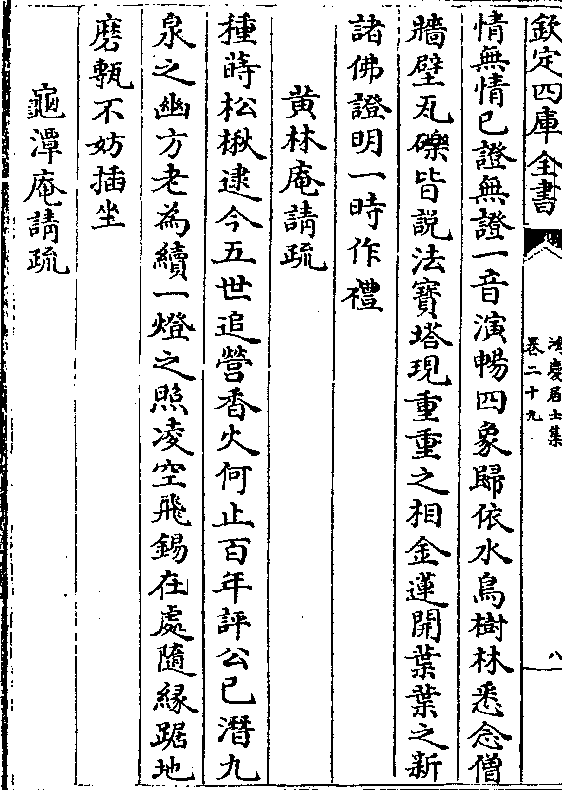 欽定四庫全書
鴻慶居士集
卷二十九
八
情無情已證無證一音演暢四象歸依水鳥樹林悉念僧
牆壁瓦礫皆説法寶塔現重重之相金蓮開葉葉之新
諸佛證明一時作禮
黄林庵請疏
種蒔松楸逮今五世追營香火何止百年評公已潛九
泉之幽方老為續一燈之照凌空飛錫在處隨緣踞地
磨甎不妨插坐
龜潭庵請疏